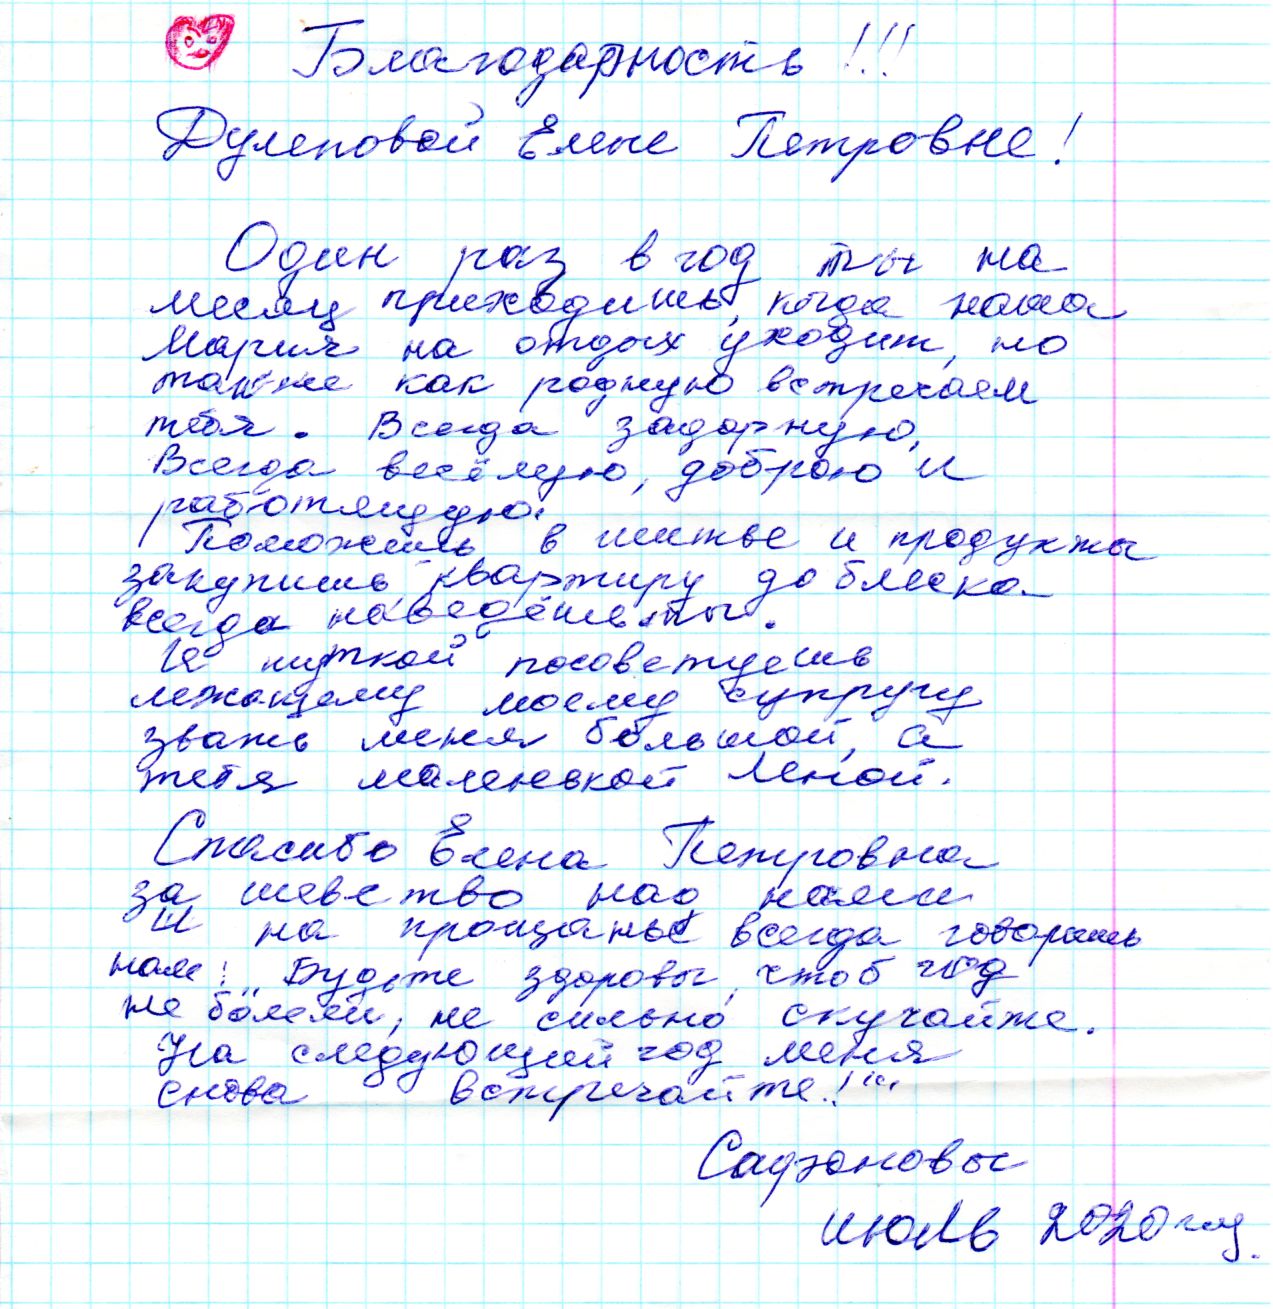 Благодарность!!!
Дулеповой Елене Петровне!
Один раз в год ты на
месяц приходишь, когда наша
Мария на отдых уходит, но
также как родную встречаем
тебя. Всегда задорную,
Всегда весёлую, доброю и
работящую.
Поможешь в шитье и продукты
закупишь, квартиру до блеска
всегда наведёшь ты.
И шуткой посоветуешь
лежащему моему супругу
звать меня большой, а
тебя маленькой Леной.
Спасибо Елена Петровна
за шевство над нами
И на прощанье всегда говоришь
нам! „Будьте здоровы, чтоб год
не болели, не сильно скучайте.
На следующий год меня
снова встречайте!"
Сафоновы
июль 2020 год.